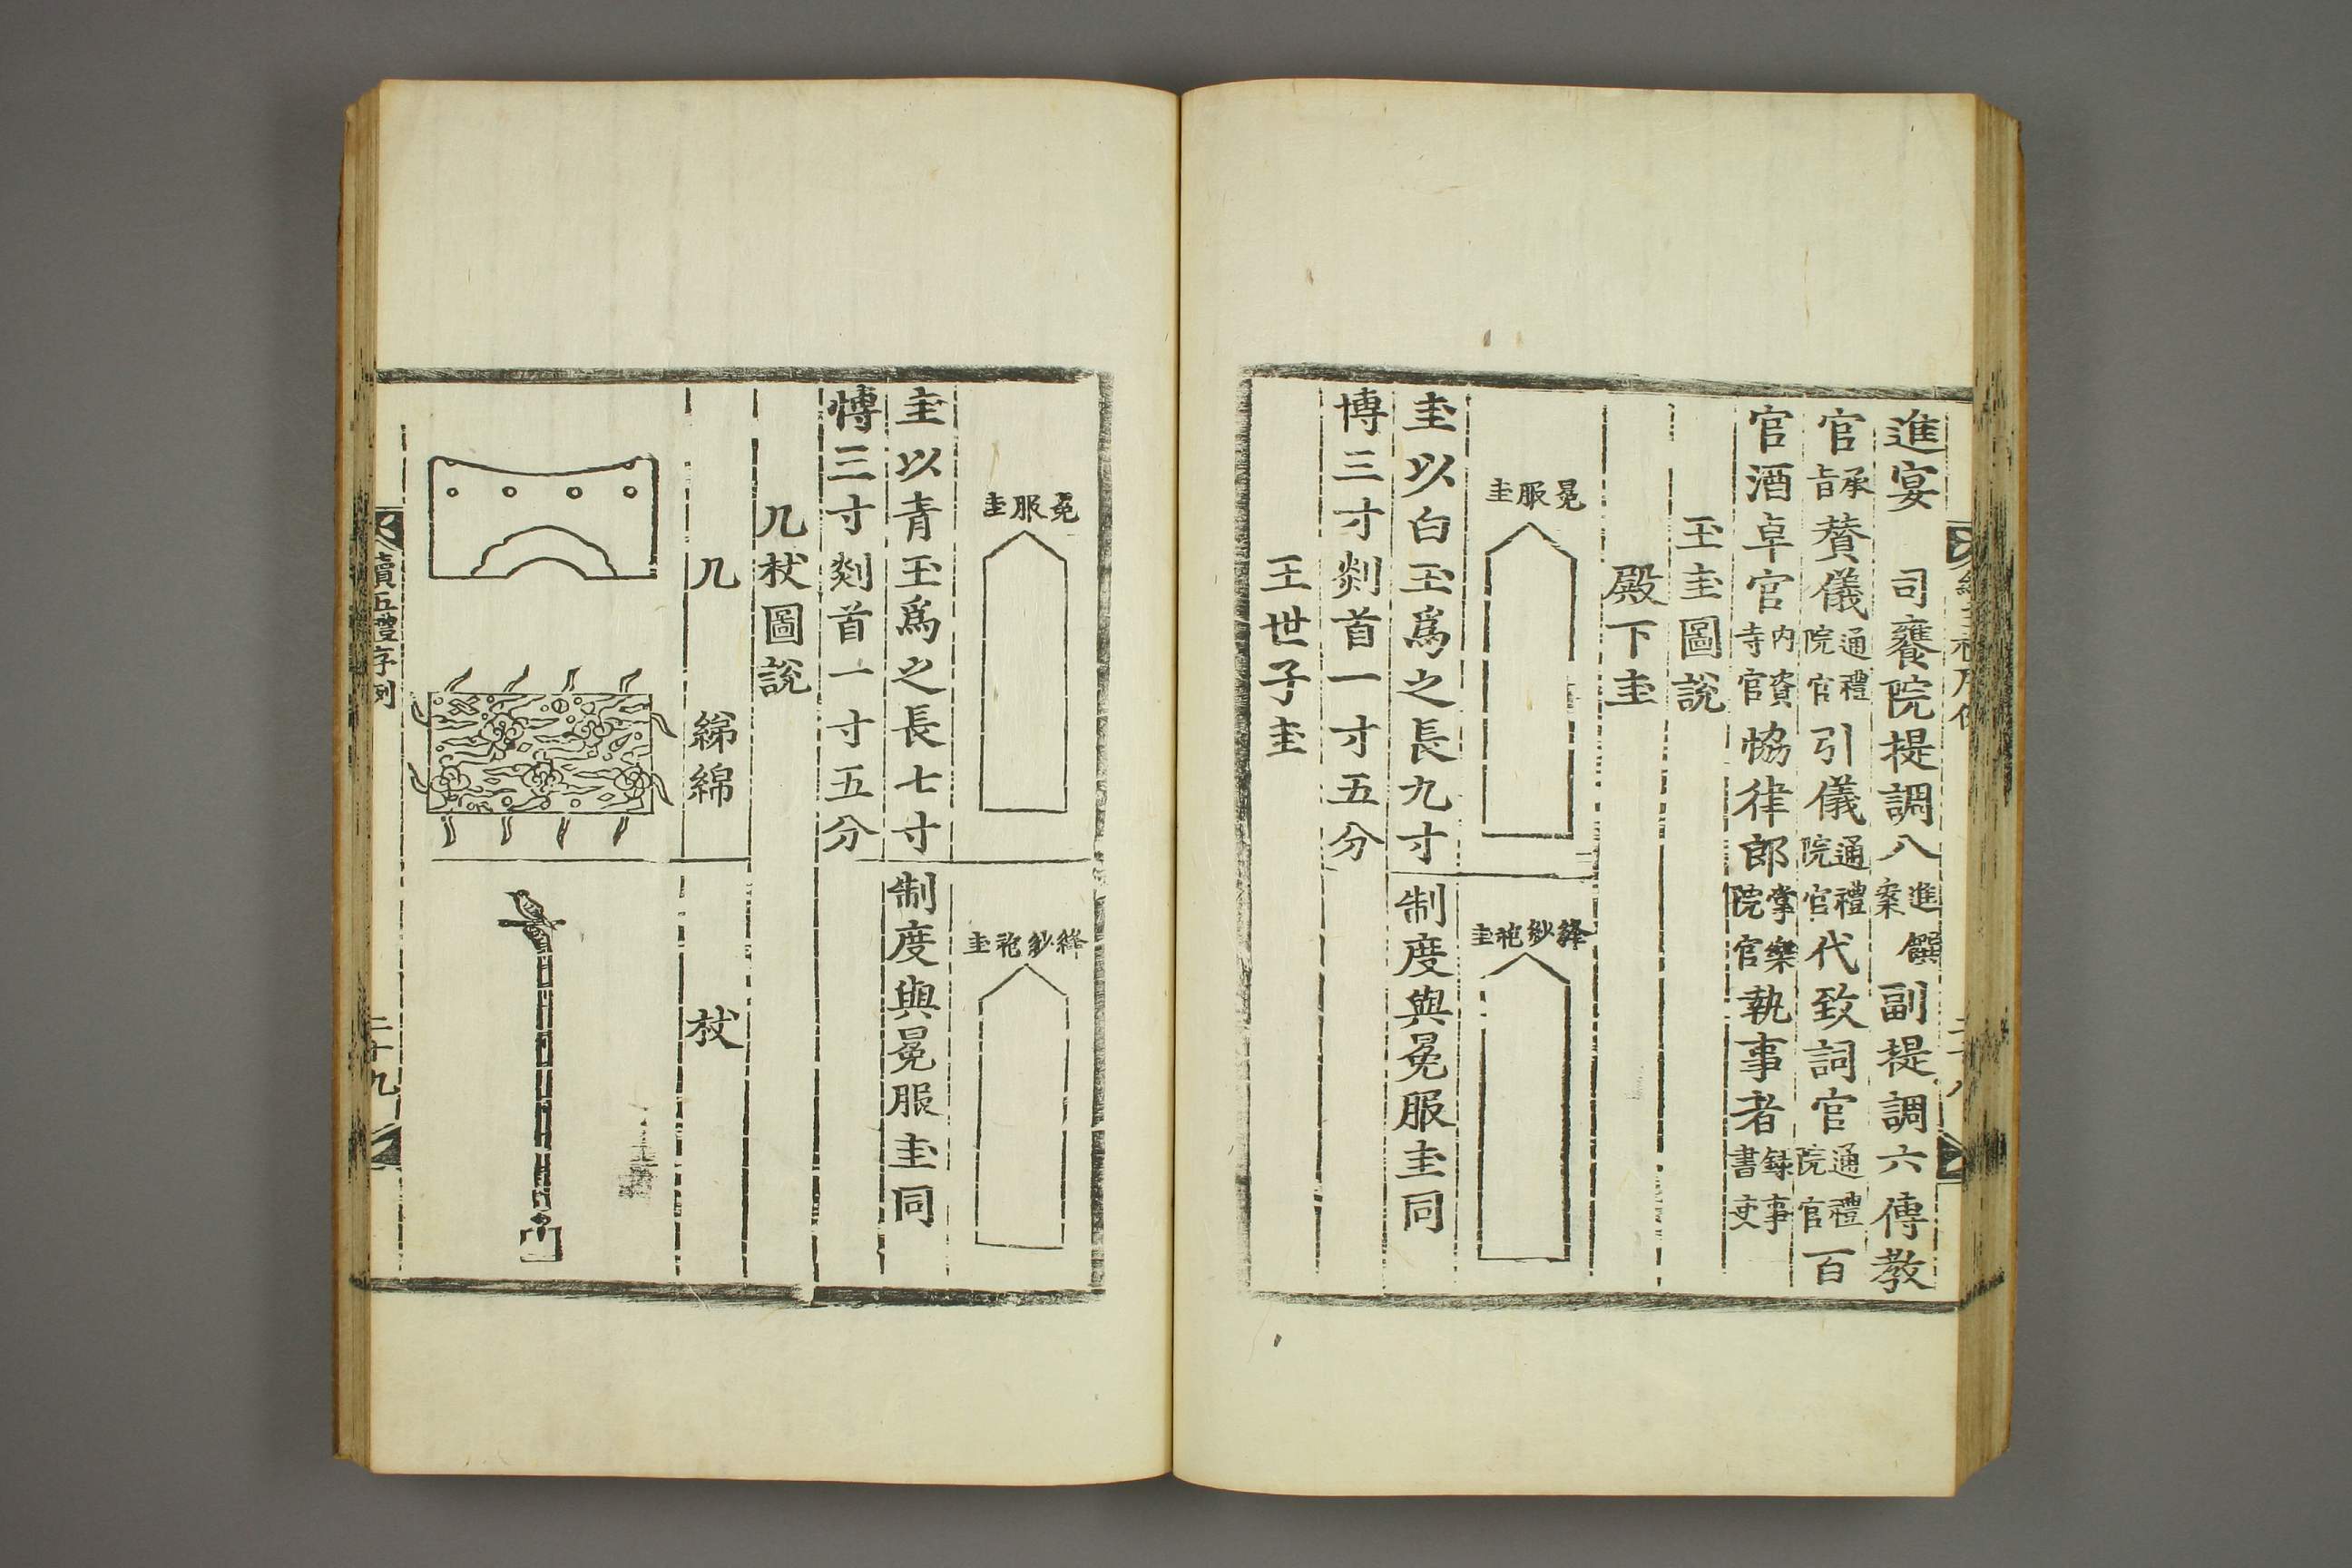 進宴 司饔院提調八進饌案副提調六傳教
官承旨贊儀通禮院官引儀通禮院官代致詞官通禮院官百
官酒卓官内資寺官協律郎掌樂院官執事者録事書吏
玉圭圖說
殿下圭
冕服圭
絳紗袍圭
圭以白玉爲之長九寸
博三寸剡首一寸五分
制度與冕服圭同
王世子圭
冕服圭
絳紗袍圭
圭以青玉爲之長七寸
博三寸剡首一寸五分
制度與冕服圭同
几杖圖說
几 綈綿
杖
續五禮序例 二十九